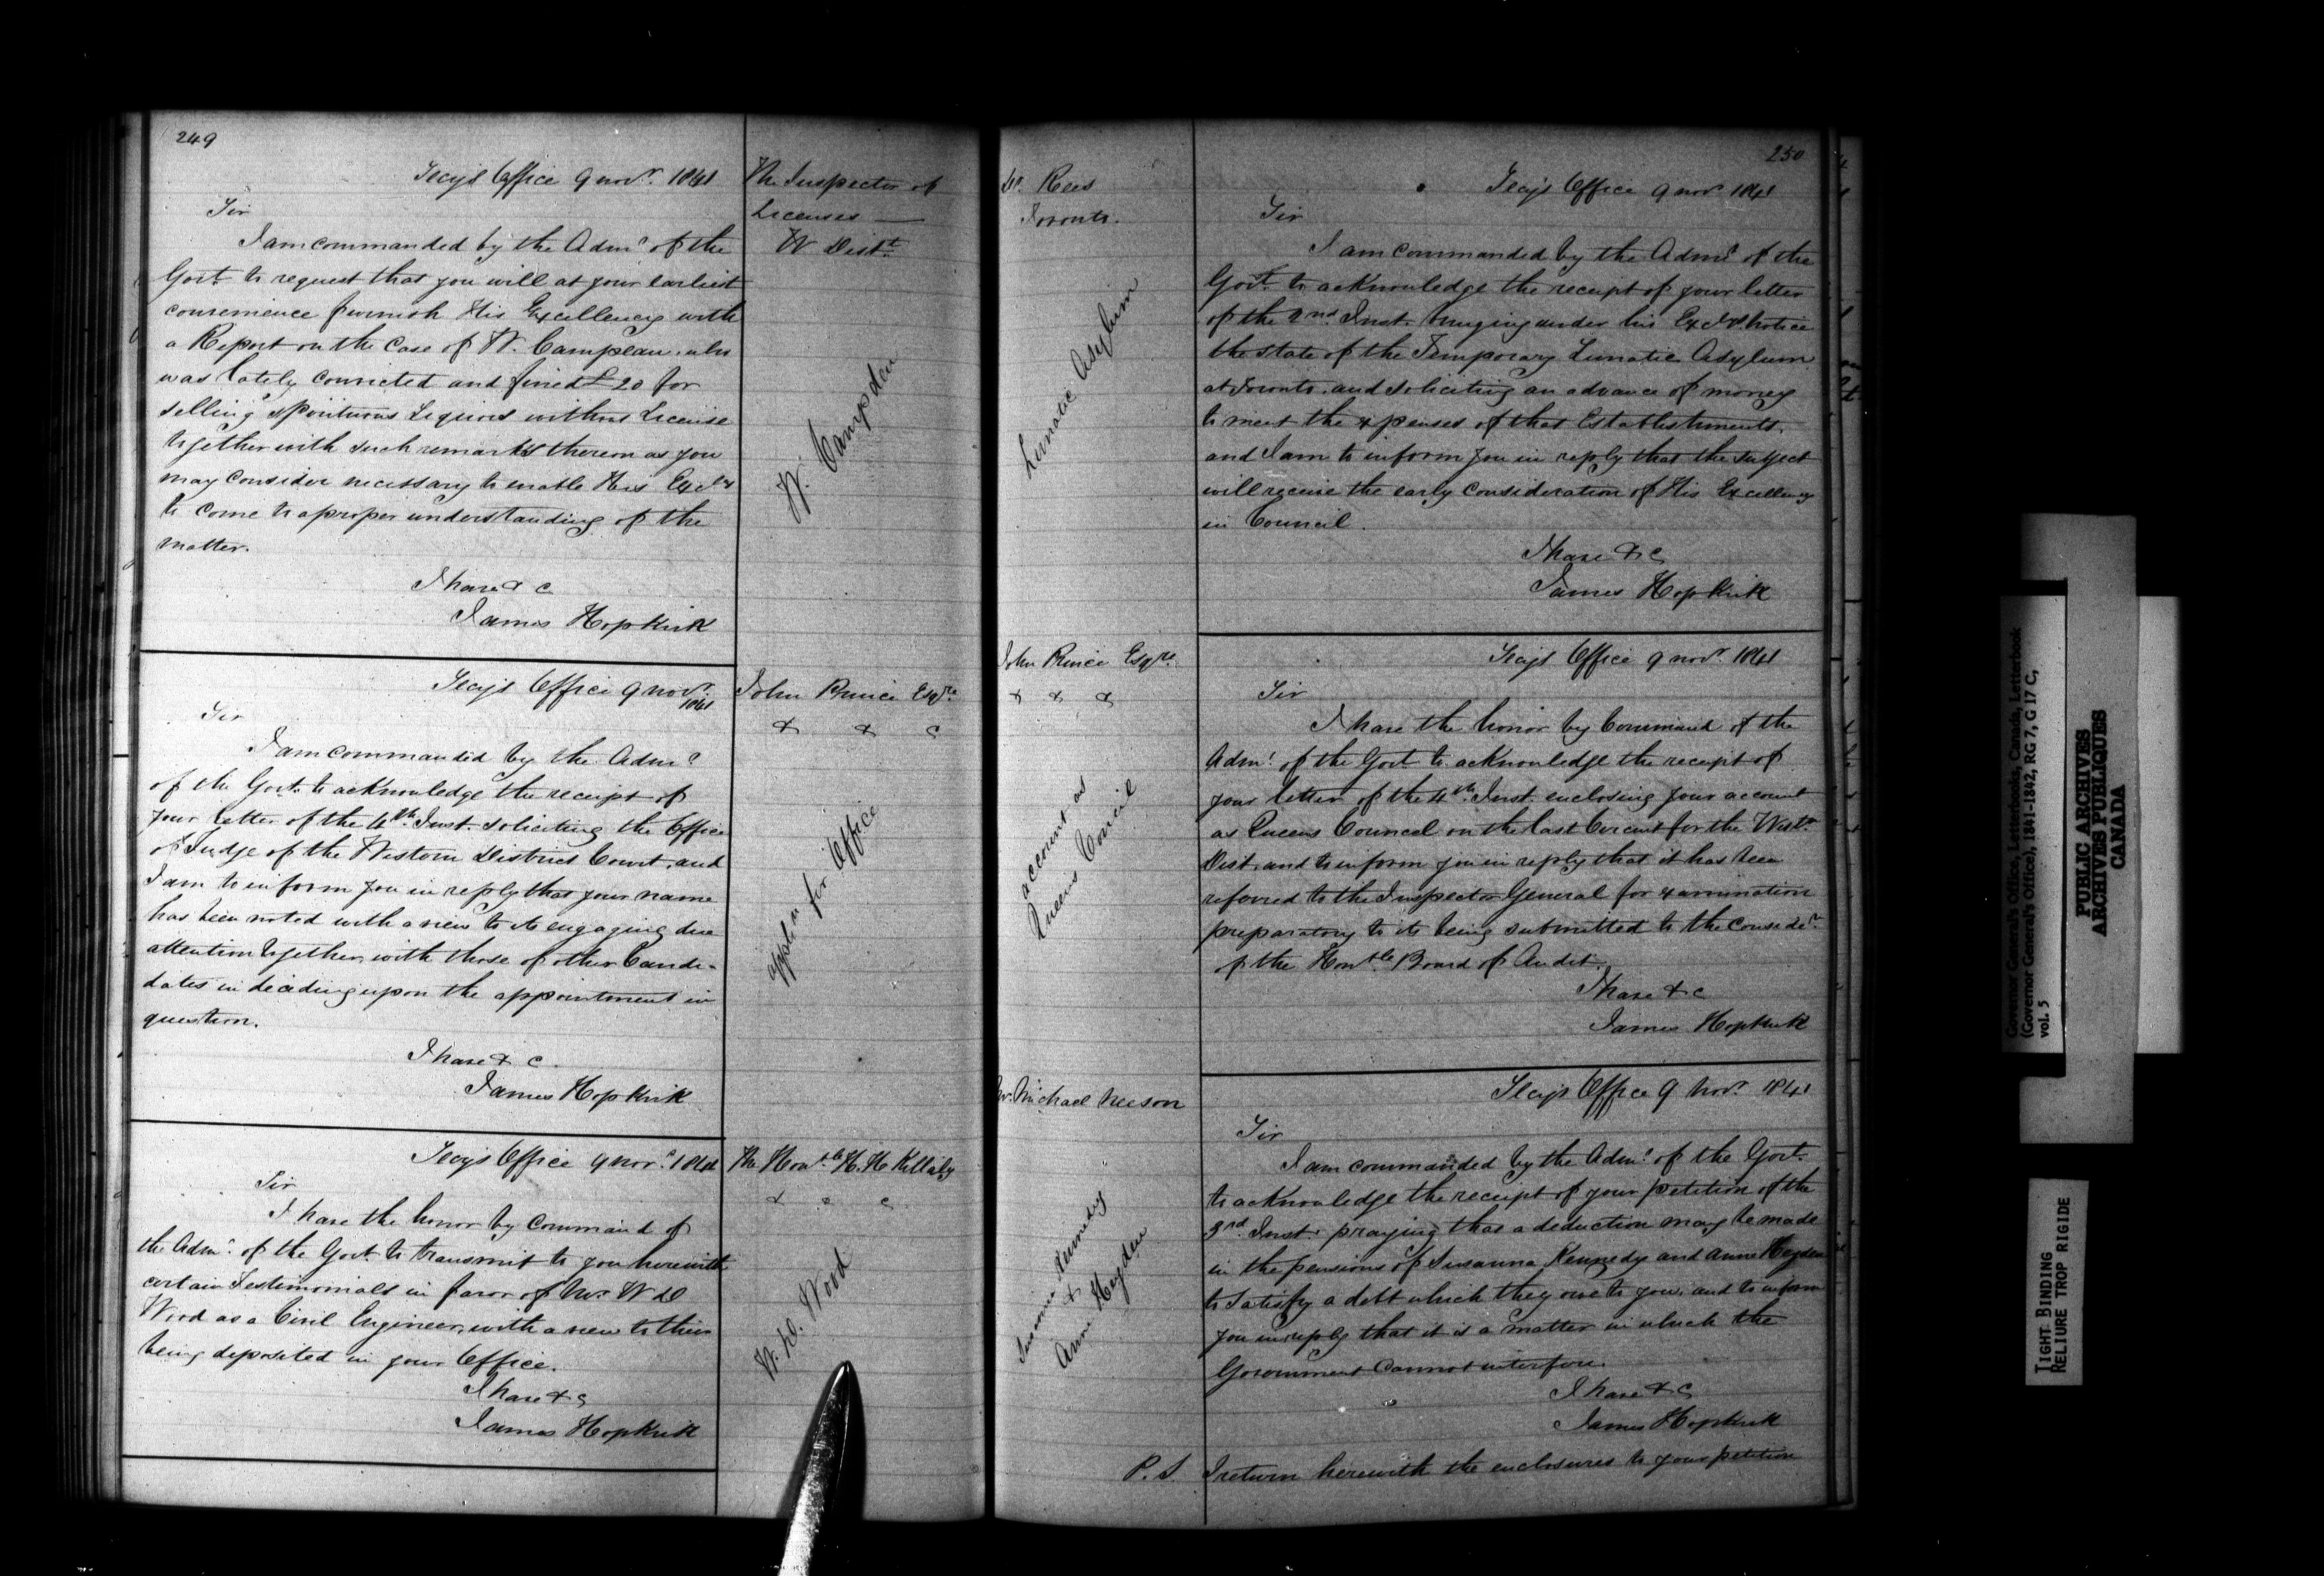 249
Secys Office 9 novr. 1841
The Inspector of
Licenses —
W Distt.
Sir
I am commanded by the Admr of the
Govt. to request that you will at your earliest
convenience furnish His Excellency with
a Report on the Case of W. Campeau who
was lately convicted and fined £20 for
selling spirituous Liquors without License
together with such remarks thereon as you
may consider necessary to enable His Excely
to come to a proper understanding of the
matter.
I have & c
James Hopkirk
W. Campden
Secys Office 9 novr.
1841
John Prince Esqre
& & c
Sir
I am commanded by the Admr
of the Govt. to acknowledge the receipt of
your letter of the 4th Inst. soliciting the Office
of Judge of the Western District Court, and
I am to inform you in reply that your name
has been noted with a view to its engaging due
attention together with those of other Candi-
dates in deciding upon the appointment in
question.
I have & c
James Hopkirk
appln for Office
Secys Office 9 novr. 1841
The Honble H. H Killaly
& c c
Sir
I have the honor by Command of
the Admr. of the Govt. to transmit to you herewith
certain Testimonials in favor of Mr. W D
Wood as a Civil Engineer, with a view to their
being deposited in your Office.
I have & c
James Hopkirk
W. D. Wood
250
Dr. Rees
Toronto.
Secys Office 9 novr 1841
Sir
I am commanded by the Admr of the
Govt. to acknowledge the receipt of your letter
of the 2nd Inst. bringing under his Excys notice
the state of the Temporary Lunatic Asylum
at Toronto, and soliciting an advance of money
to meet the expenses of that Establishments.
and I am to inform you in reply that the subject
will receive the early consideration of His Excellency
in Council.
I have & c
James Hopkirk
Lunatic Asylum
John Prince Esqre.
& & &
Secys Office 9 novr. 1841
Sir
I have the honor by Command of the
Admr. of the Govt. to acknowledge the receipt of
your letter of the 4th Inst. enclosing your account
as Queens Council on the last Circuit for the Westn
Dist. and to inform you in reply that it has been
referred to the Inspector General for examination
preparatory to its being submitted to the considen.
of the Honble Board of Audit.
I have & c
James Hopkirk
account as
Queens Council
Mr. Michael Neeson
Secys Office 9 Novr. 1841
Sir
I am commanded by the Admr. of the Govt.
to acknowledge the receipt of your petition of the
3rd. Inst. praying that a deduction may be made
in the pensions of Susanna Kennedy and Anne Hayden
to satisfy a debt which they owe to you, and to inform
you in reply that it is a matter in which the
Government cannot interfere.
I have & c
James Hopkirk
Susanna Kennedy
&
Anne Hayden
P. S. I return herewith the enclosures to your petition
Governor General's Office, Letterbooks, Canada, Letterbook
(Governor General's Office), 1841-1842, RG 7, G 17 C,
vol. 5
PUBLIC ARCHIVES
ARCHIVES PUBLIQUES
CANADA
TIGHT BINDING
RELIURE TROP RIGIDE